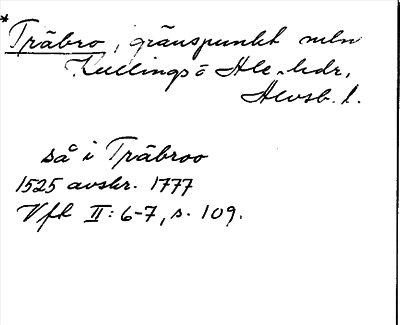 *Träbro, gränspunkt mln
Kullings ö Ale hdr,
Älvsb. l.
så i Träbroo
1525 avskr. 1777
Vfl II: 6-7, s. 109.